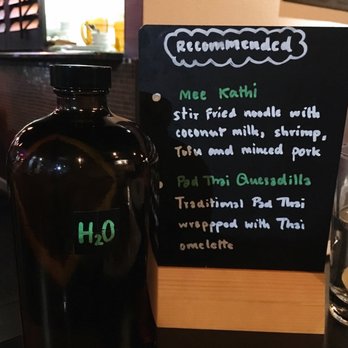 Recommended
Mee Kathi
stir fried noodle with
coconut milk, shrimp,
Tofu and minced pork
Pad Thai Quesadilla
Traditional Pad Thai
wrappped with Thai
omelette
H₂O